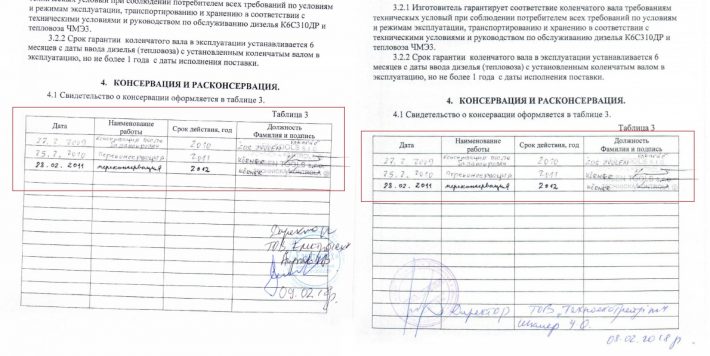 техническых условий при соблюдении потребителем всех требований по условиям
и режимам эксплуатации, транспортированию и хранению в соответствии с
техническими условиями и руководством по обслуживанию дизелья К6С310ДР и
тепловоза ЧМЭ3.
3.2.2 Срок гарантии коленчатого вала в эксплуатации устанавливается 6
месяцев с даты ввода дизелья (тепловоза) с установленным коленчатым валом в
эксплуатацию, но не более 1 года с даты исполнения поставки.
4. КОНСЕРВАЦИЯ И РАСКОНСЕРВАЦИЯ.
4.1 Свидетельство о консервации оформляется в таблице 3.
Таблица 3
Дата Наименование работы Срок действия, год Должность Фамилия и подпись
27.2.2009 консервация после 2010
25.2.2010 переконсервация 2011
28.02.2011 переконсервация 2012
Директор
ТОВ
09.02.18р.
3.2.1 Изготовитель гарантирует соответствие коленчатого вала требованиям
техническых условий при соблюдении потребителем всех требований по условиям
и режимам эксплуатации, транспортированию и хранению в соответствии с
техническими условиями и руководством по обслуживанию дизелья К6С310ДР и
тепловоза ЧМЭ3.
3.2.2 Срок гарантии коленчатого вала в эксплуатации устанавливается 6
месяцев с даты ввода дизелья (тепловоза) с установленным коленчатым валом в
эксплуатацию, но не более 1 года с даты исполнения поставки.
4. КОНСЕРВАЦИЯ И РАСКОНСЕРВАЦИЯ.
4.1 Свидетельство о консервации оформляется в таблице 3.
Таблица 3
Дата Наименование работы Срок действия, год Должность Фамилия и подпись
27.2.2009 консервация после 2010
25.2.2010 переконсервация 2011
28.02.2011 переконсервация 2012
Директор ТОВ
08.02.2018р.